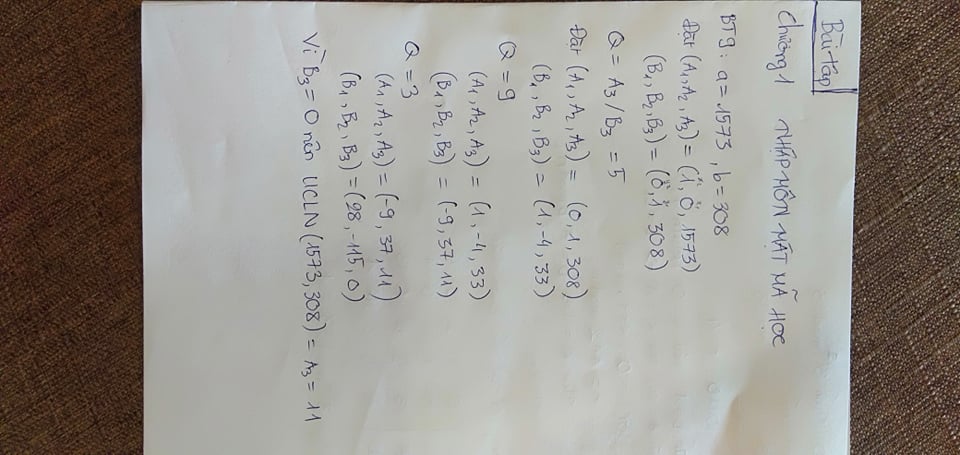 Bài tập
Chương 1 NHẬP MÔN MẬT MÃ HỌC
BT9: a = 1573, b = 308
Đặt (A₁, A₂, A₃) = (1, 0, 1573)
(B₁, B₂, B₃) = (0, 1, 308)
Q = A₃ / B₃ = 5
Đặt (A₁, A₂, A₃) = (0, 1, 308)
(B₁, B₂, B₃) = (1, -4, 33)
Q = 9
(A₁, A₂, A₃) = (1, -4, 33)
(B₁, B₂, B₃) = (-9, 37, 11)
Q = 3
(A₁, A₂, A₃) = (-9, 37, 11)
(B₁, B₂, B₃) = (28, -115, 0)
Vì B₃ = 0 nên UCLN (1573, 308) = A₃ = 11